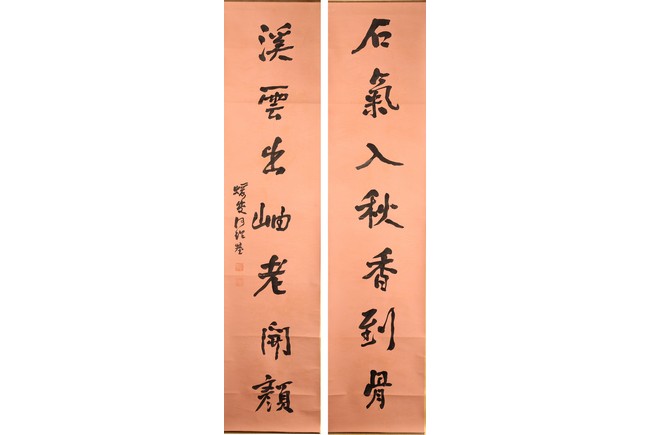 石氣入秋香到骨
溪雲出岫老開顏
蝯叟何紹基